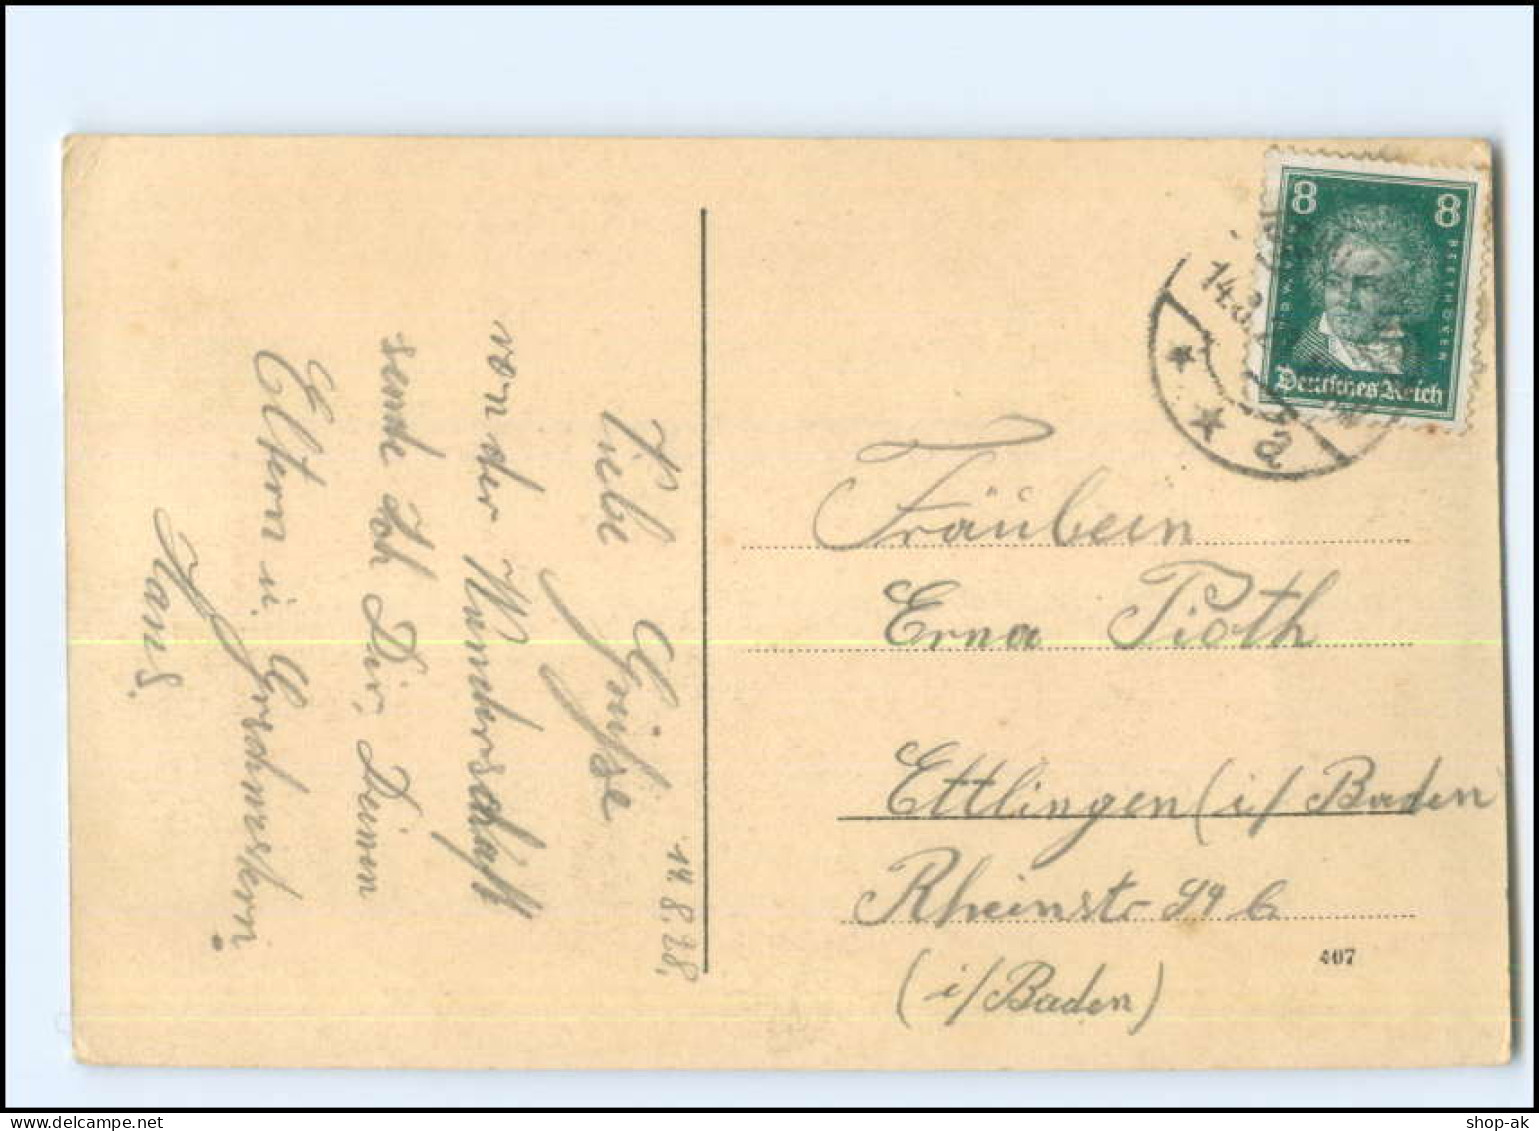 14.8.28.
Liebe Grüsse
von der Wanderschaft
sende ich Dir, Deinen
Eltern u. Geschwistern.
Hans.
8 8
BEETHOVEN
Deutsches Reich
14.8.
a
Fräulein
Erna
Ettlingen (i/Baden
Rheinstr
(i/Baden)
407
shop-ak